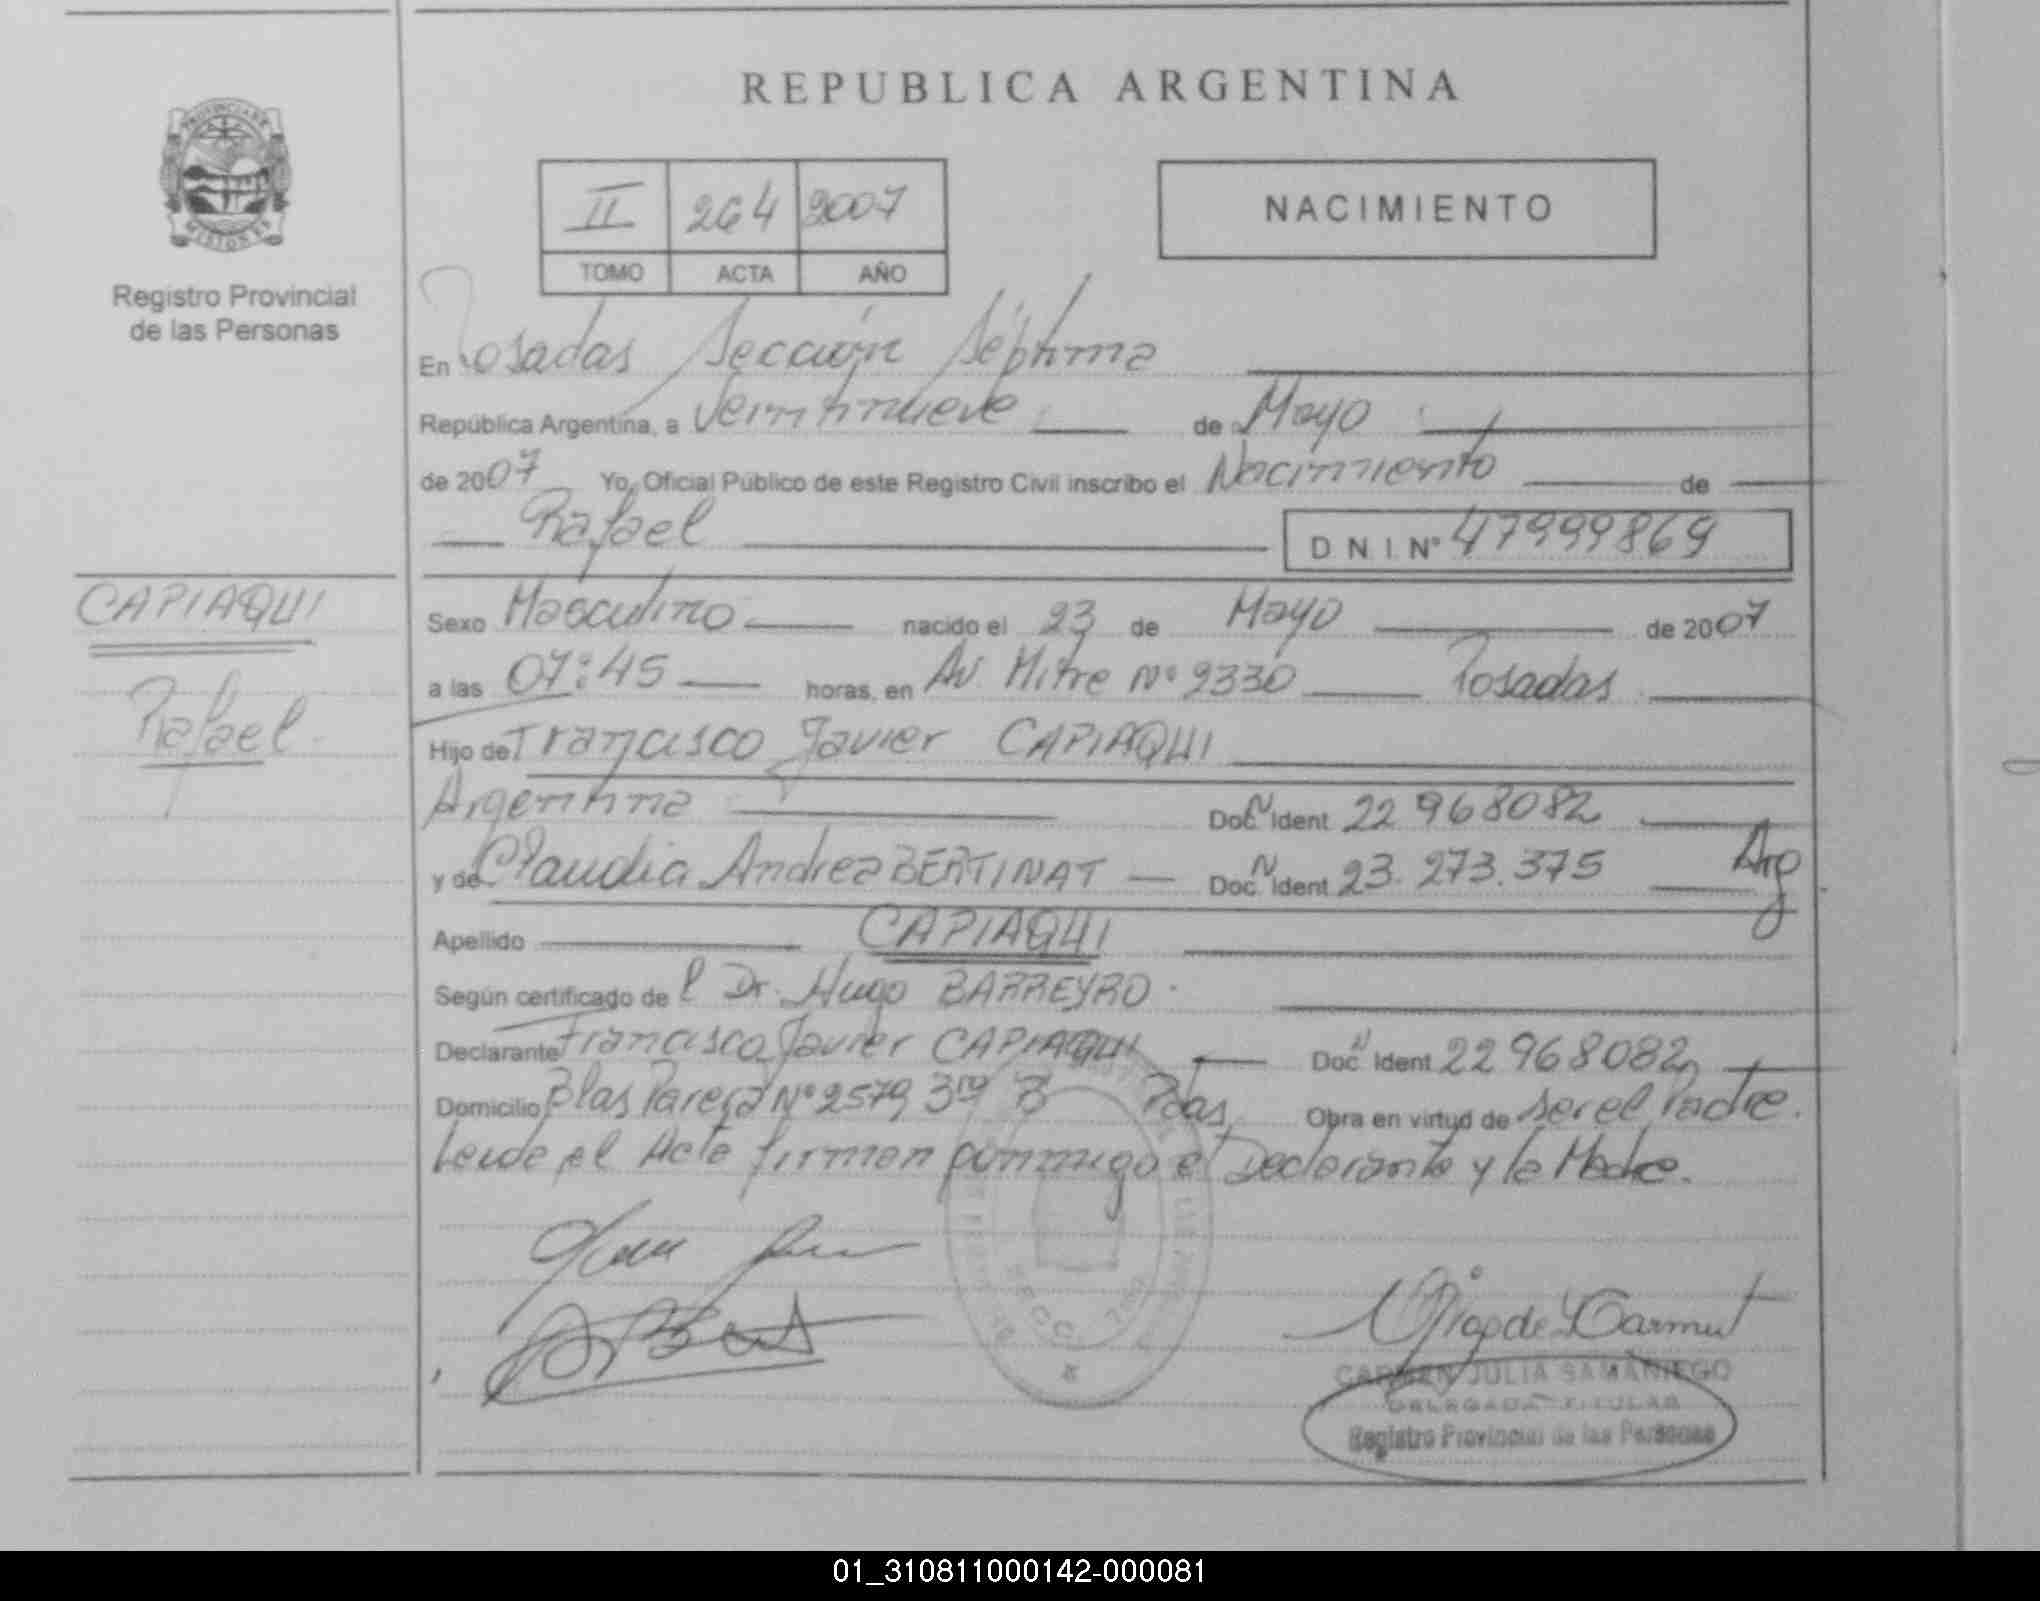 REPUBLICA ARGENTINA
PROVINCIA DE
MISIONES
Registro Provincial
de las Personas
II 264 2007
TOMO ACTA AÑO
NACIMIENTO
En Posadas Sección Séptima
República Argentina, a Veintinueve de Mayo
de 2007 Yo, Oficial Público de este Registro Civil inscribo el Nacimiento de
Rafael D N I Nº 47999869
CAPIAQUI
Rafael
Sexo Masculino nacido el 23 de Mayo de 2007
a las 07:45 horas, en Av. Mitre Nº 2330 Posadas
Hijo de Francisco Javier CAPIAQUI
Argentina Doc. Ident 22 968082
y de Claudia Andrea BERTINAT Doc. N Ident 23.273.375 Arg
Apellido CAPIAQUI
Según certificado de l Dr. Hugo BARREYRO.
Declarante Francisco Javier CAPIAQUI Doc Ident 22968082
Domicilio Blas Parera Nº 2579 3ro B Pdas Obra en virtud de ser el Padre.
Leida el Acta firman conmigo el Declarante y la Madre.
CARMEN JULIA SAMANIEGO
DELEGADA TITULAR
Registro Provincial de las Personas
01_310811000142-000081